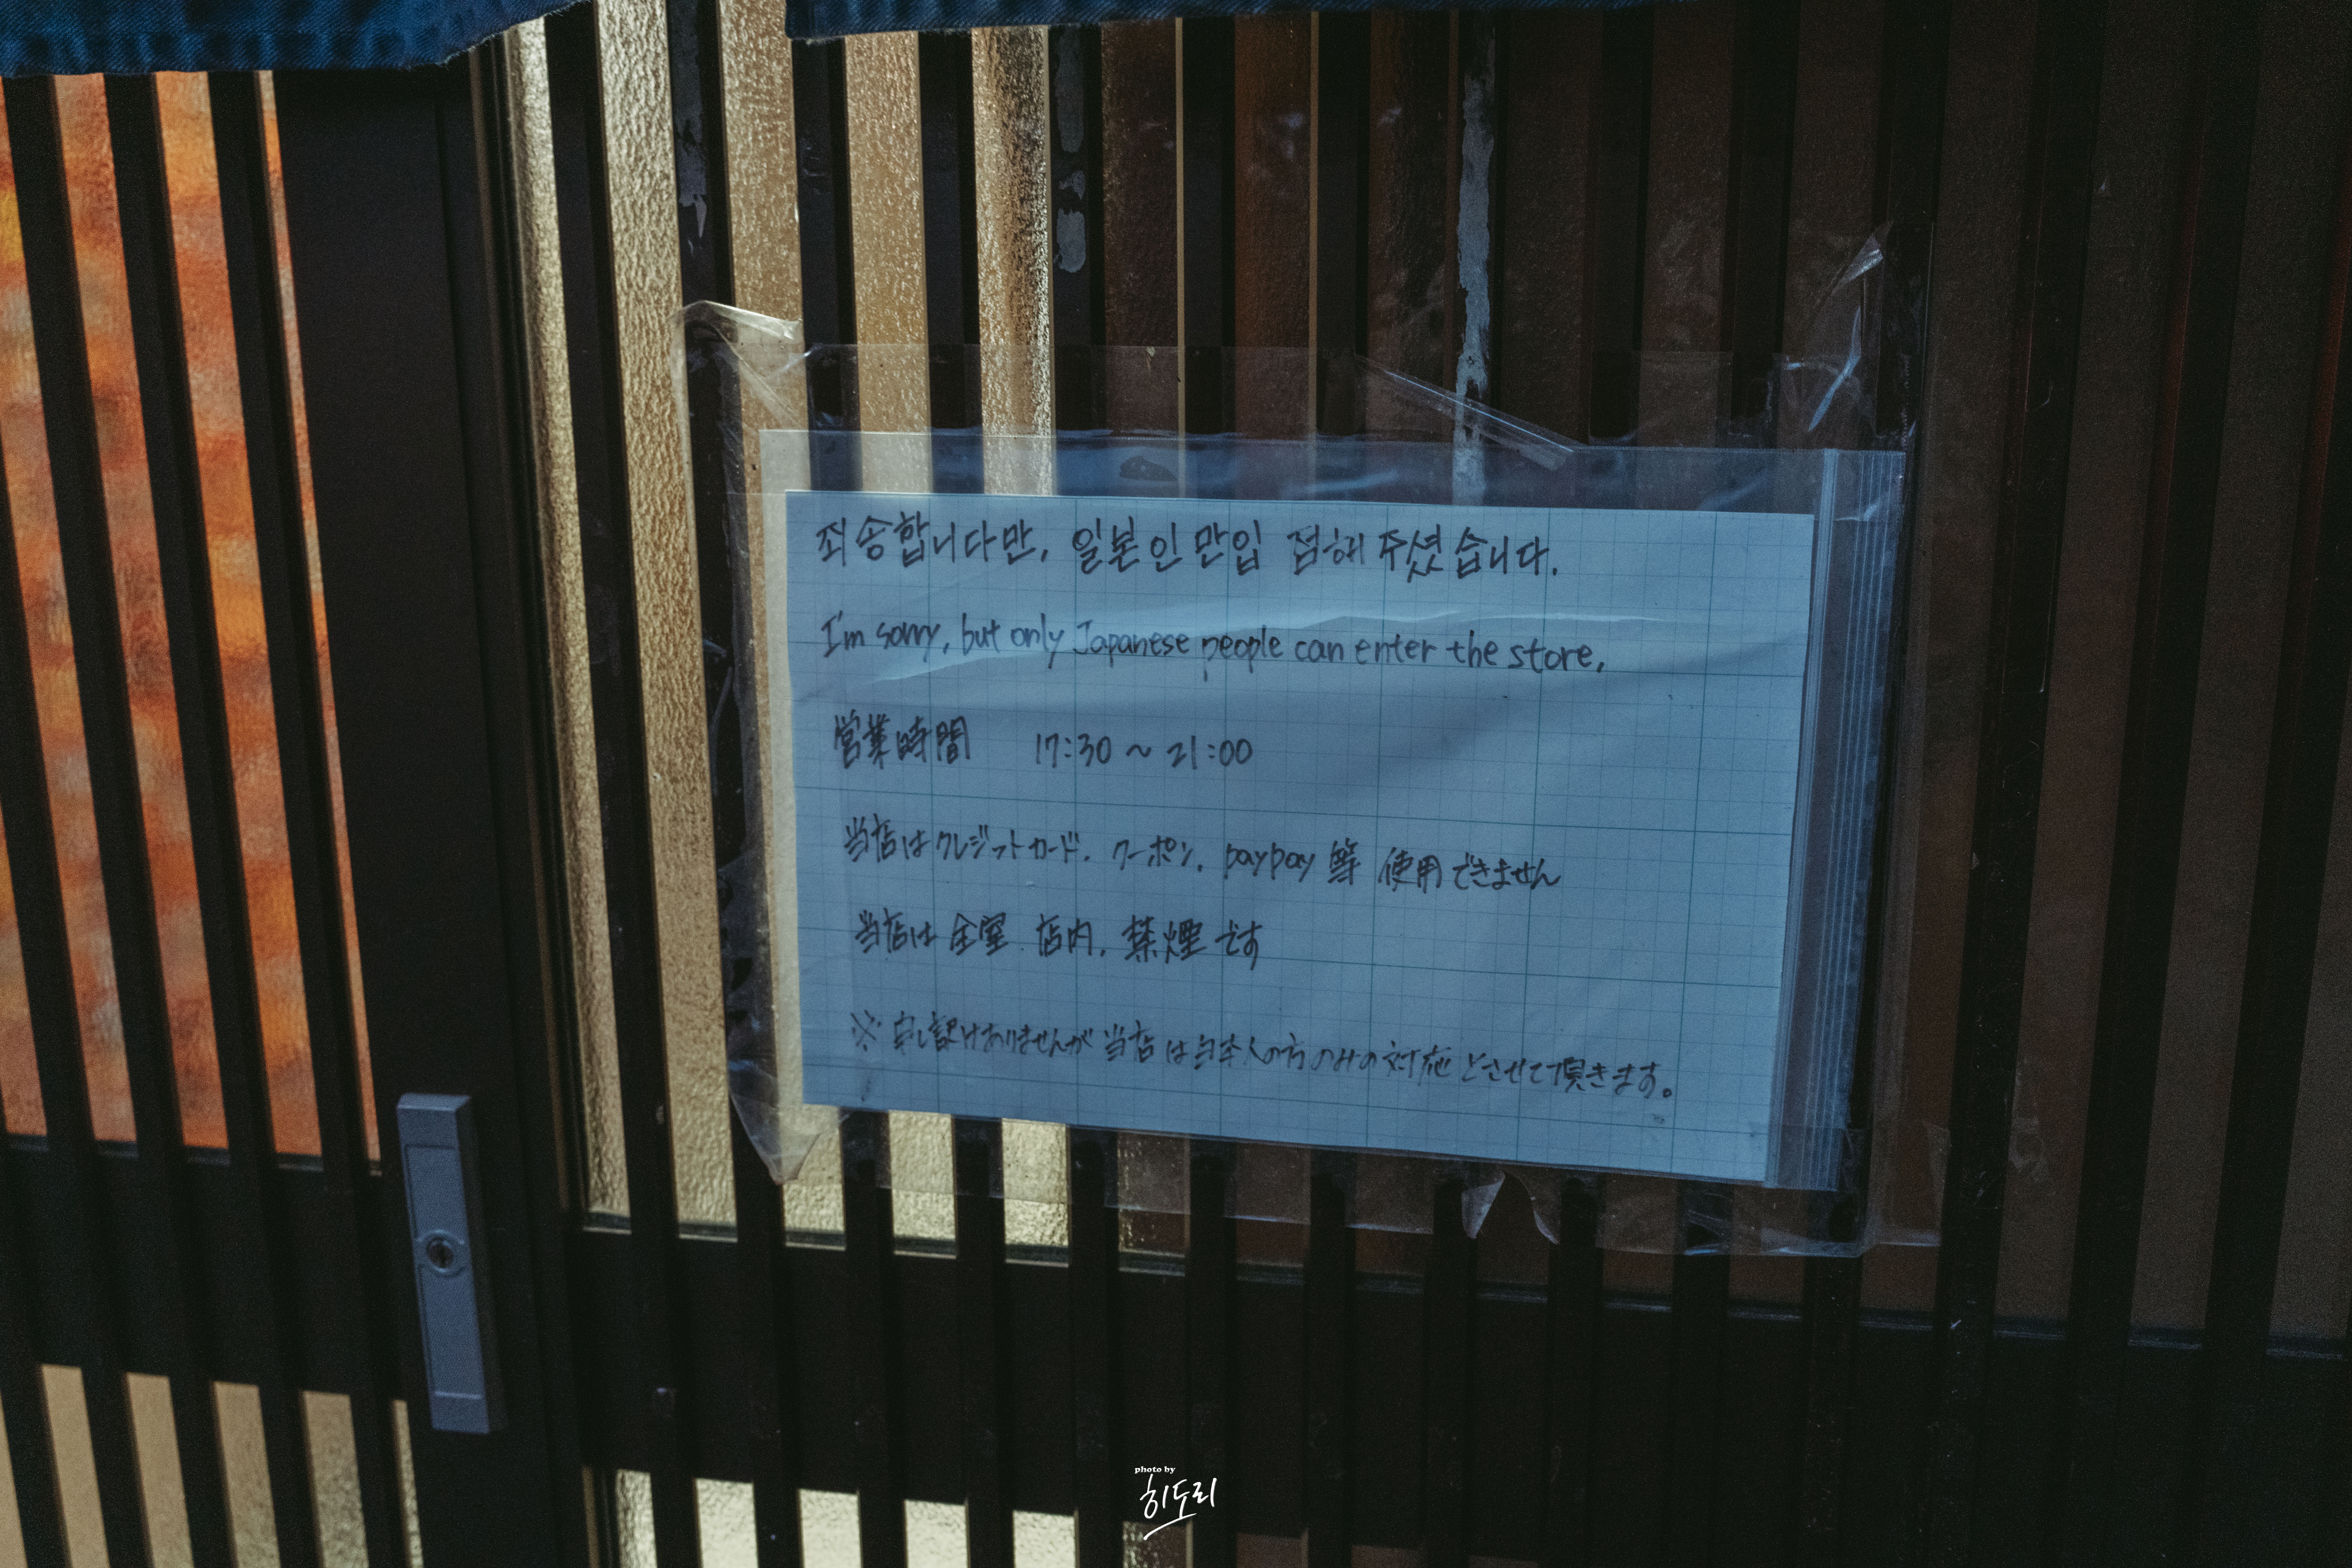 죄송합니다만, 일본인만입 점해주셨습니다.
I'm sorry, but only Japanese people can enter the store.
営業時間 17:30 ~ 21:00
当店はクレジットカード. クーポン. paypay 等 使用できません
当店は 全室 店内. 禁煙です
※ 申し訳けありませんが 当店は日本人の方のみの対応とさせて頂きます。
photo by
히도리